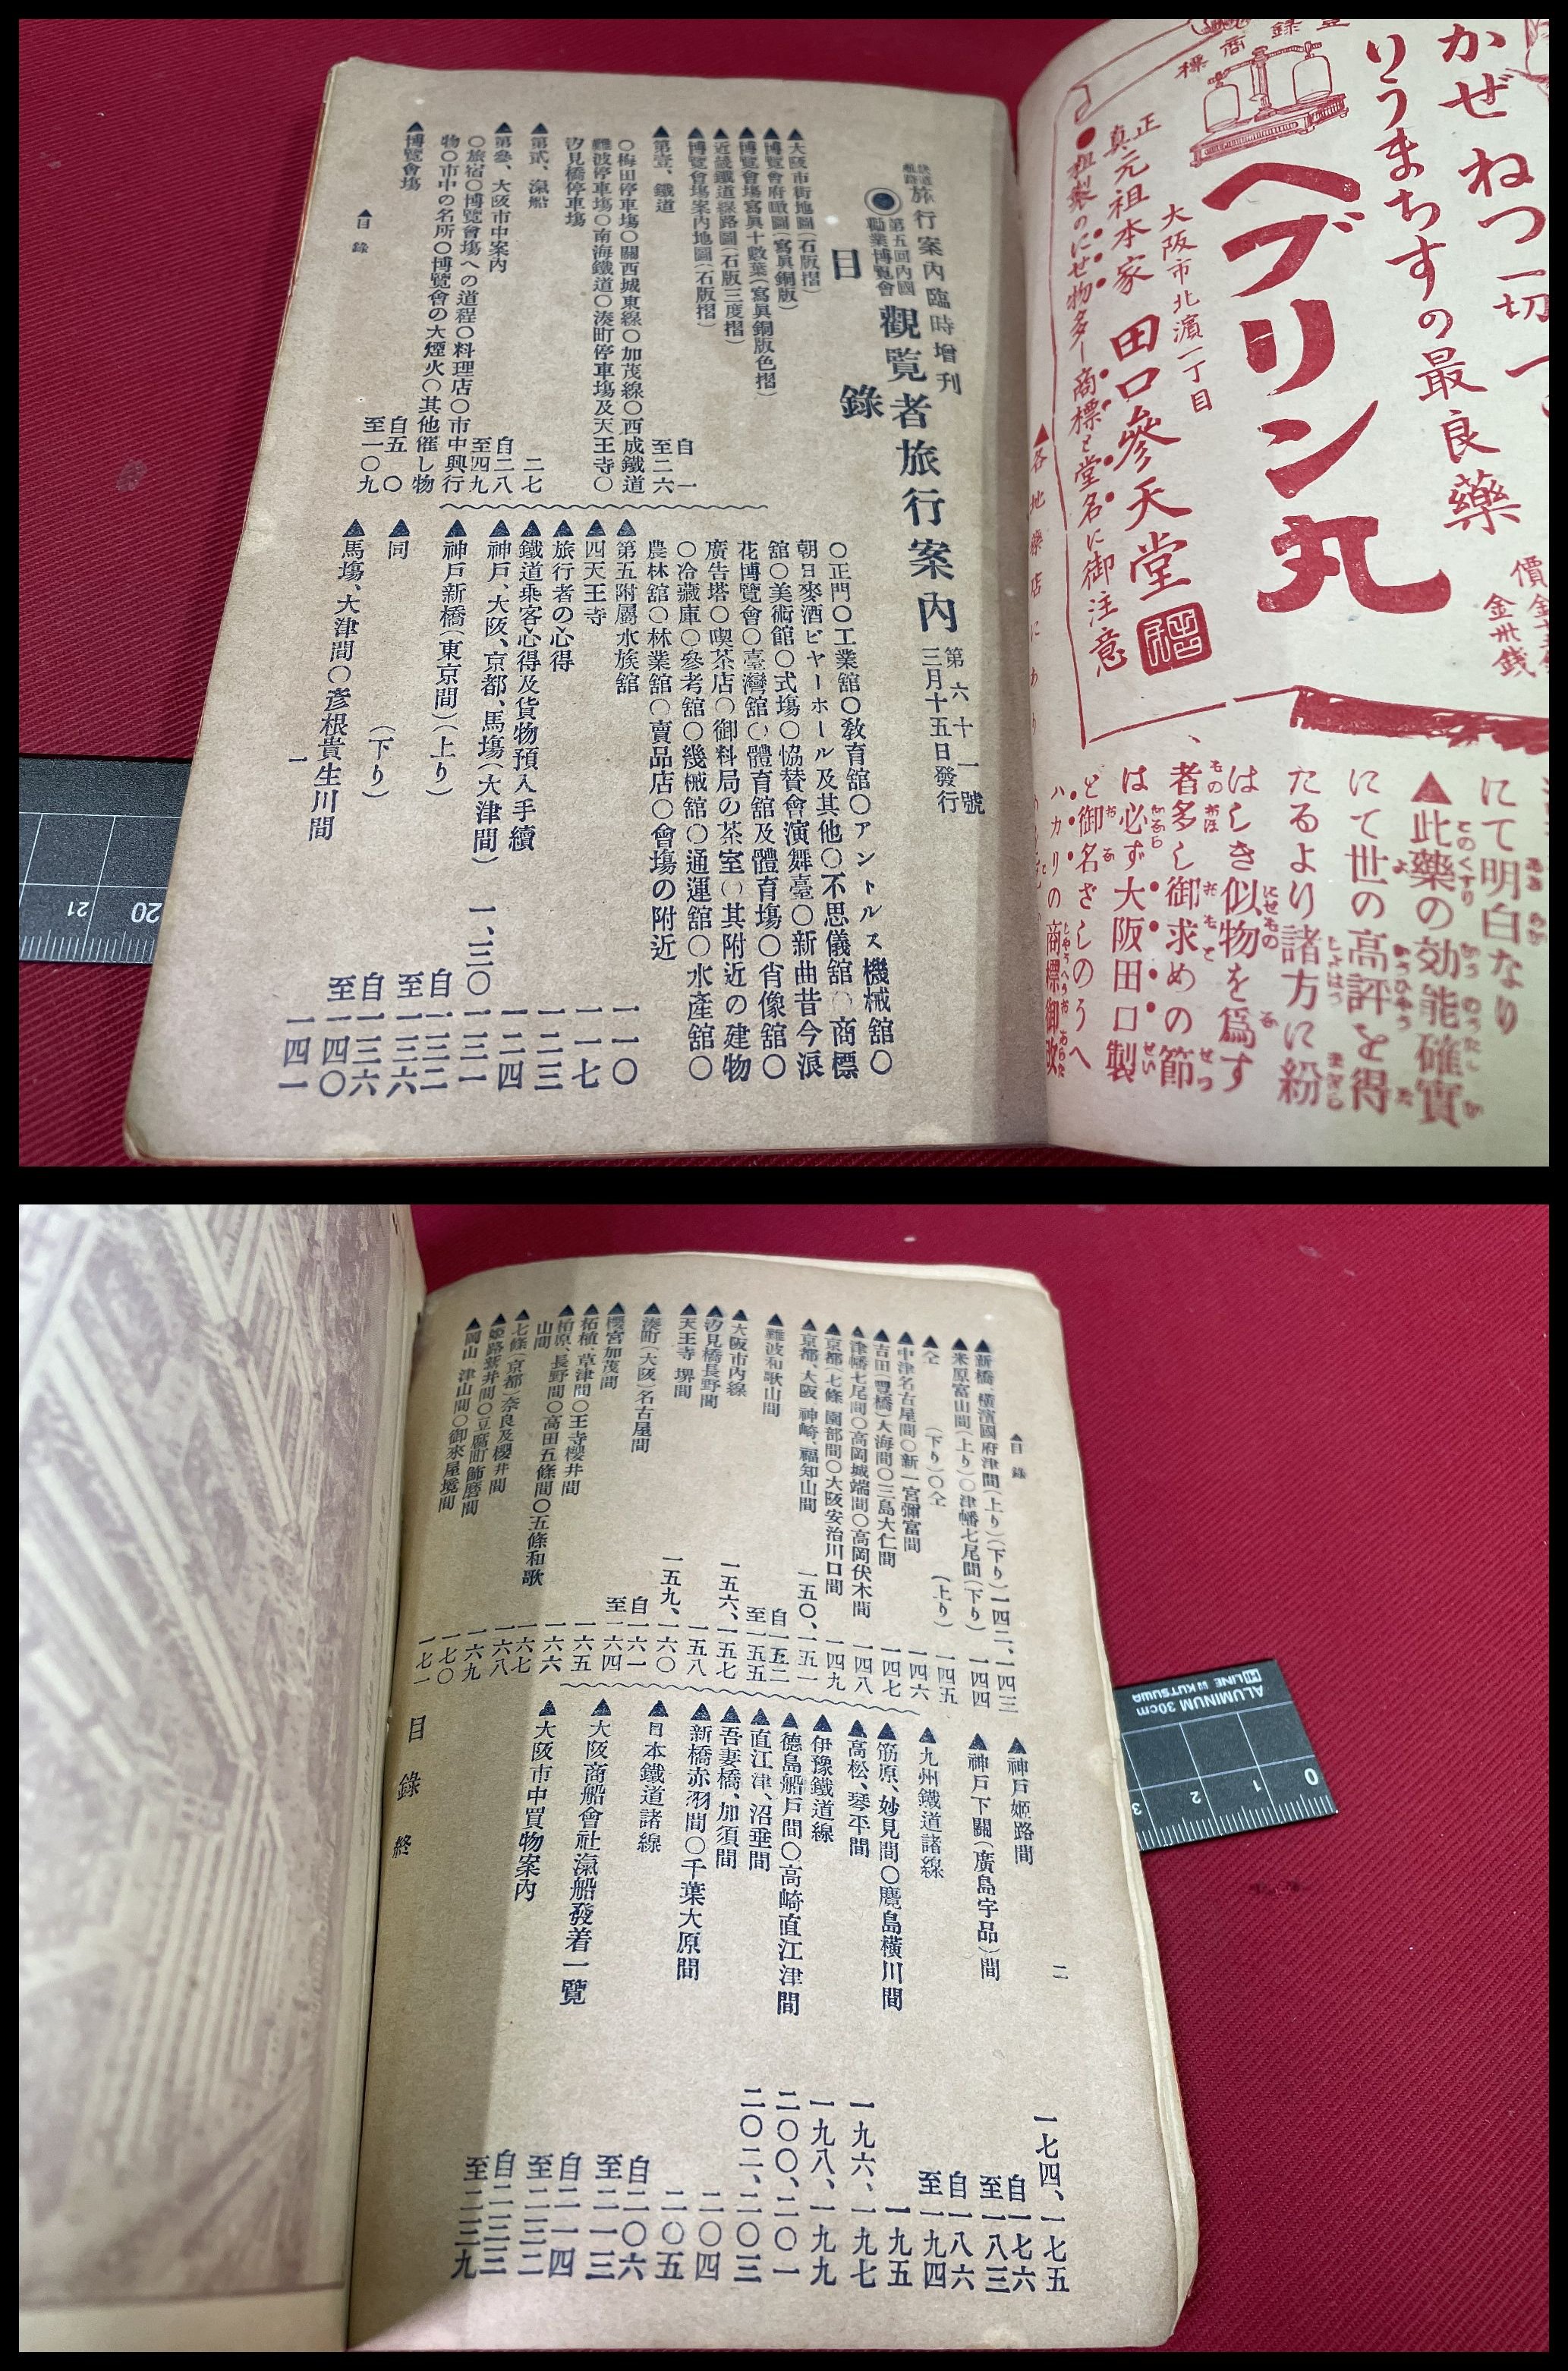 かぜ ねつ 一切
りうまちすの最良藥
登錄商標
ヘブリン丸
大阪市北濱一丁目
正真元祖本家 田口參天堂
●粗製のにせ物多し商標と堂名に御注意
にて明白なり
▲此藥の効能確實
にて世の高評を得
たるより諸方に紛
はしき似物を爲す
者多し御求めの節
は必ず大阪田口製
と御名ざしのうへ
ハカリの商標御改
旅行案内臨時增刊
第五回内國勸業博覽會 觀覽者旅行案内 第六十一號 三月十五日發行
目錄
▲大阪市街地圖(石版摺)
▲博覽會府瞰圖(寫眞銅版)
▲博覽會場寫眞十數葉(寫眞銅版色摺)
▲近畿鐵道線路圖(石版三度摺)
▲博覽會場案内地圖(石版摺)
▲第壹、鐵道 自一至二六
○梅田停車場○關西城東線○加茂線○西成鐵道
難波停車場○南海鐵道○湊町停車場及天王寺○
汐見橋停車場
▲第貳、滊船 二七
▲第參、大阪市中案内 自二八至四九
○旅宿○博覽會場への道程○料理店○市中興行
物○市中の名所○博覽會の大煙火○其他催し物
▲博覽會場 自五〇至一〇九
○正門○工業舘○敎育舘○アントルス機械舘○
朝日麥酒ビヤーホール及其他○不思儀舘○商標
舘○美術舘○式場○協替會演舞臺○新曲昔今浪
花博覽會○臺灣舘○體育舘及體育場○肖像舘○
廣告塔○喫茶店○御料局の茶室○其附近の建物
○冷藏庫○參考舘○機械舘○通運舘○水產舘○
農林舘○林業舘○賣品店○會場の附近
▲第五附屬水族舘 一一〇
▲四天王寺 一一七
▲旅行者の心得 一二三
▲鐵道乘客心得及貨物預入手續 一二四
▲神戶、大阪、京都、馬場(大津間) 一、三〇 一三一
▲神戶新橋(東京間)(上り) 自一三二至一三六
▲同 (下り) 自一三六至一四〇
▲馬場、大津間○彥根貴生川間 一四一
▲目錄
一
▲目錄
二
▲新橋、橫濱國府津間(上り)(下り) 一四二、一四三
▲米原富山間(上り)○津幡七尾間(下り) 一四四
▲仝 (下り)○仝 (上り) 一四五
▲中津名古屋間○新一宮彌富間 一四六
▲吉田(豐橋)大海間○三島大仁間 一四七
▲津幡七尾間○高岡城端間○高岡伏木間 一四八
▲京都(七條 園部間○大阪安治川口間 一四九
▲京都、大阪 神崎、福知山間 一五〇、一五一
▲難波和歌山間 自一五二至一五五
▲大阪市内線
▲汐見橋長野間 一五六、一五七
▲天王寺 堺間 一五八
▲湊町(大阪)名古屋間 一五九、一六〇
▲櫻宮加茂間 自一六一至一六四
▲柘植、草津間○王寺櫻井間 一六五
▲柏原、長野間○高田五條間○五條和歌
山間 一六六
▲七條(京都)奈良及櫻井間 一六七
一六八
▲姬路新井間○豆腐町飾磨間 一六九
一七〇
▲岡山 津山間○御來屋境間 一七一
▲神戶姬路間 一七四、一七五
▲神戶下關(廣島宇品)間 自一七六至一八三
▲九州鐵道諸線 自一八六至一九四
▲筋原、妙見間○麑島橫川間 一九五
▲高松、琴平間 一九六、一九七
▲伊豫鐵道線 一九八、一九九
▲德島船戶間○高崎直江津間 二〇〇、二〇一
▲直江津、沼垂間 二〇二、二〇三
▲吾妻橋、加須間 二〇四
▲新橋赤羽間○千葉大原間 二〇五
▲日本鐵道諸線 自二〇六至二一三
▲大阪商船會社滊船發着一覽 自二一四至二三二
▲大阪市中買物案内 自二三三至二三九
目錄終